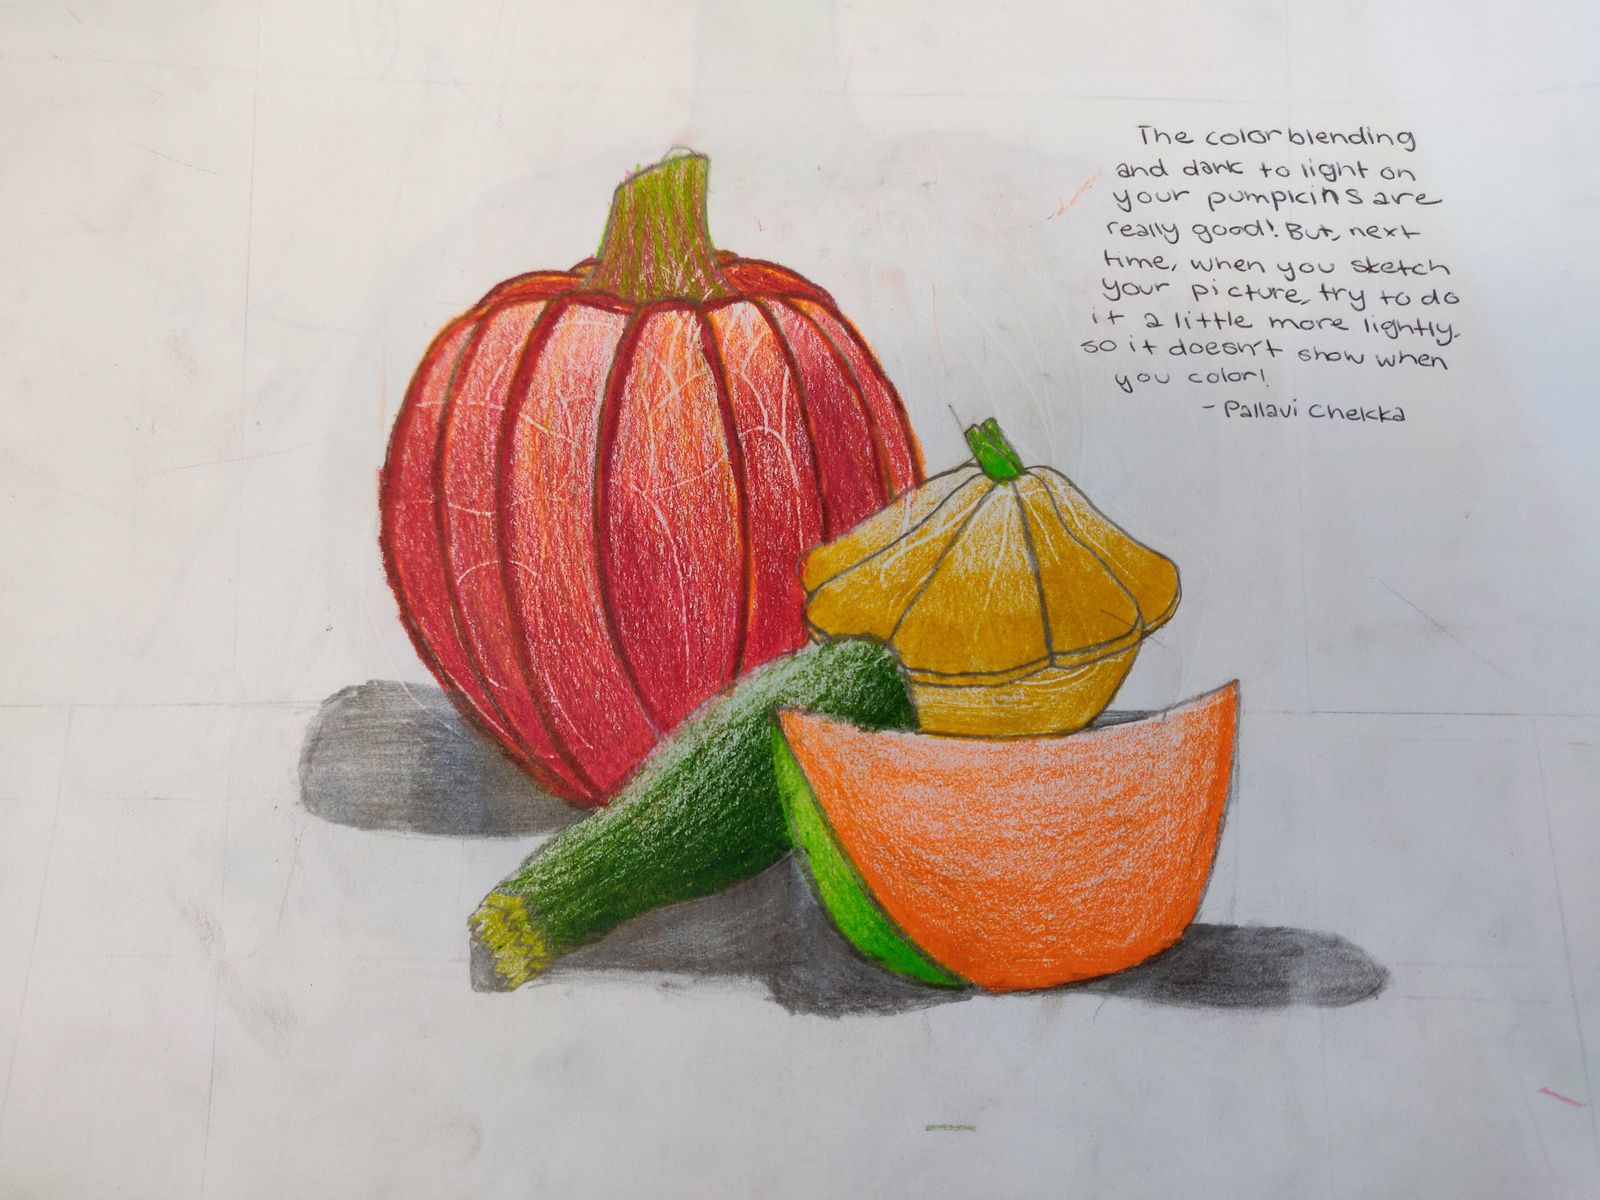 The color blending
and dark to light on
your pumpkins are
really good! But, next
time, when you sketch
your picture, try to do
it a little more lightly.
so it doesn't show when
you color!
- Pallavi Chekka